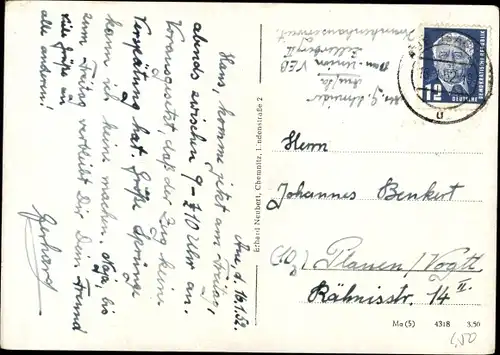 Aue, d. 16.1.52.
Hans, komme jetzt am Freitag,
abends zwischen 9 - ½10 Uhr an.
Vorausgesetzt, daß der Zug keine
Verspätung hat. Große Sprünge
kann ich keine machen. Naja, bis
zum Freitag verbleibt Dir Dein Freund
Viele Grüße an
alle anderen!
Gerhard
Erhard Neubert, Chemnitz, Lindenstraße 2
VEB
12
DEUTSCHE
Herrn
Johannes Benkert
(10) Plauen/Vogtl
Rähnisstr. 14 II.
Ma (5) 4318 3.50